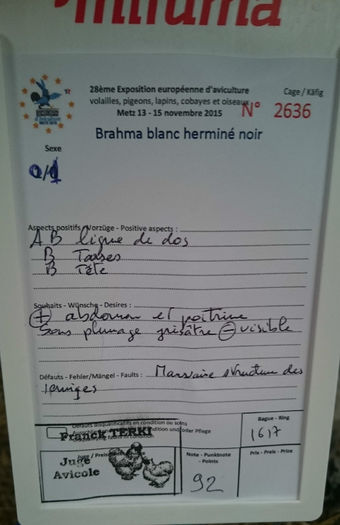 mifuma
28ème Exposition européenne d'aviculture
volailles, pigeons, lapins, cobayes et oiseaux
Metz 13 - 15 novembre 2015
Cage / Käfig
N° 2636
Brahma blanc herminé noir
Sexe
0/1
Aspects positifs - Vorzüge - Positive aspects :
AB ligne de dos
B Tarses
B Tête
Souhaits - Wünsche - Desires :
+ abdomen et poitrine
Sous plumage grisâtre - visible
Défauts - Fehler/Mängel - Faults : Mauvaise structure des
rémiges
Franck TERKI
Juge
Avicole
Bague - Ring
1617
Note - Punktnote
- Points
92
Prix - Preis - Prize